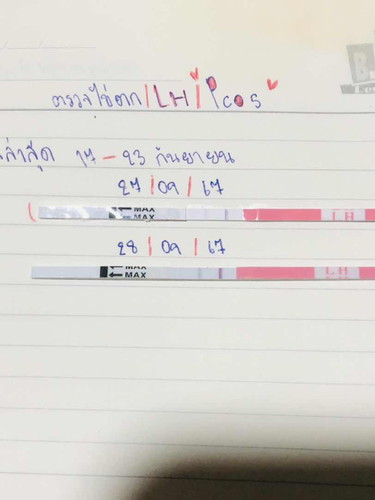 ตรวจไข่ตก | LH | Pcos
ล่าสุด 17 - 23 กันยายน
27 | 09 | 67
MAX
MAX
LH
28 | 09 | 67
MAX
MAX
LH